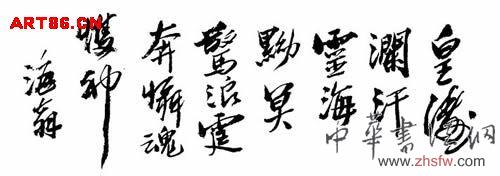 ART86.CN
皇濤
瀾汗
靈海
黝冥
驚浪霆
奔懾魂
神
海翁
中華書法網
www.zhsfw.com